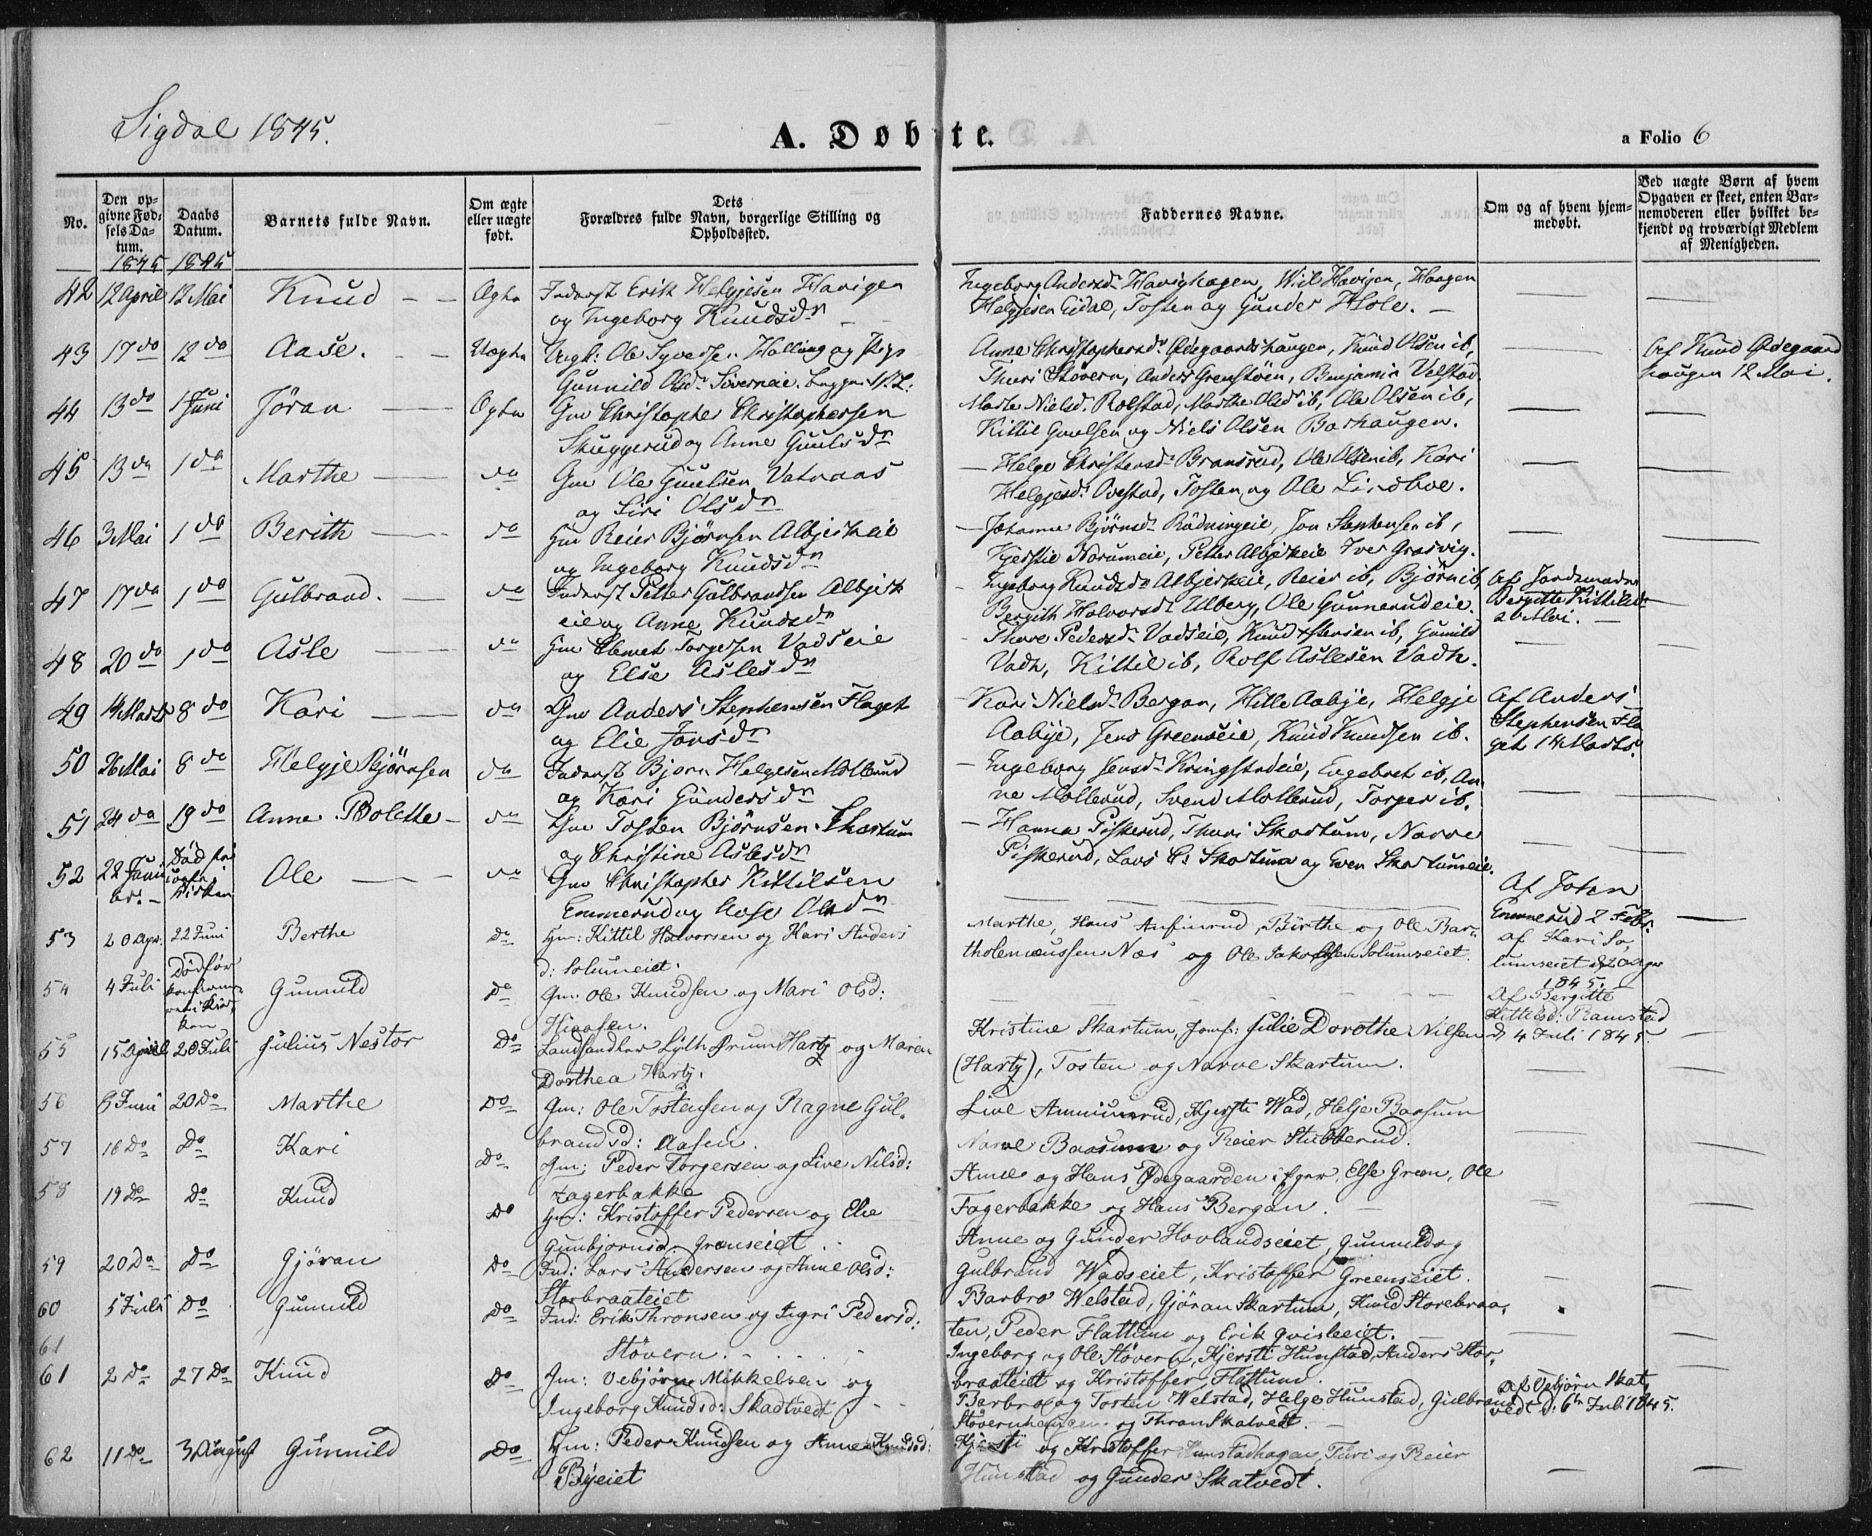 Sigdal 1845.
A. Døbte.
a Folio 6
No.
Den opgivne Fødsels Datum.
Daabs Datum.
Barnets fulde Navn.
Om ægte eller uægte født.
Dets Forældres fulde Navn, borgerlige Stilling og Opholdssted.
Faddernes Navne.
Om og af hvem hjemmedøbt.
Ved uægte Børn af hvem Opgaven er skeet, enten Barnemoderen eller hvilket bekjendt og troværdigt Medlem af Menigheden.
1845 1845
42 12 April 12 Mai Knud — — Ægte Inderst Erik Helgjesen Havigen Ingeborg Andersd. Havighagen, Havigen, Haagen
og Ingeborg Knudsdr Helgjesen Eidal, Tosten og Gunder Hole. —
43 17 do 12 do Aase. — Uægte Ungk: Ole Syversen Halling og Pige Anne Christophersd. Ødegaardshaugen, Knud Olsen ib, Af Knud Ødegaard
Gunnild Olsd. Thuri Støvern, Anders Grenstøen, Benjamin Velstad haugen 12 Mai.
44 13 do 1 Juni Jøran — Ægte Gm Christopher Christophersen Marte Nielsd. Rolstad, Marthe Olsd ib, Ole Olsen ib,
Skuggerud og Anne Guulsdr Kittil Guulsen og Niels Olsen Borhaugen.
45 13 do 1 do Marthe — do Gm Ole Guulsen Vatnaas — Helge Christensd. Bransrud, Ole Olsen ib, Kari
og Siri Olsdr Helgjesd. Ovestad, Tosten og Ole Lindboe.
46 3 Mai 1 do Berith — do Hm Reier Bjørnsen Albjerkeie — Johanne Bjørnsd. Rødningeie, Jon Stephensen ib,
og Ingeborg Knudsdr Kjerstie Norumeie, Petter Albjerkeie Iver Grasvig.
47 17 do 1 do Gulbrand. — do Inderst Petter Gulbrandsen Albjerk — Ingeborg Knudsdr Albjerkeie, Reier ib, Bjørn ib, Af Jordemoder
eie og Anne Knudsdr Bergith Halvorsd. Ulberg, Ole Gunnerudeie. Bergitte Kittilsd.
48 20 do 1 do Asle — do Hm Clemet Torgersen Vadseie — Thore Pedersd. Vadseie, Knud ib, Gunild Mai. —
og Else Aslesdr Vadh, Kittil ib, Rolf Aslesen Vadh.
49 14 Marts 8 do Kari — do Gm Anders Stephensen Flaget — Kari Nielsd. Bergan, Hille Aabye, Helgje Af Anders
og Elie Jonsdr Aabye, Jens Greenseie, Knud Knudsen ib. Stephensen Fla
get 14 Marts.
50 26 Mai 8 do Helgje Bjørnsen do Inderst Bjørn Helgesen Mollerud — Ingeborg Jensd. Kringstadeie, Engebret ib, An
og Kari Gundersdr ne Mollerud, Svend Mollerud, Torger ib.
51 24 do 19 do Anne Bolette — do Gm Tosten Bjørnsen Skartum — Hanna Piskerud, Thuri Skartum, Narve
og Christine Aslesdr Piskerud, Lars C: Skartum og Even Skartumeie.
52 Død Ole — do Gm Christopher Kittilsen
Kirken Emmerud og Aase Olsdr Af John
Emmerud 2 Febr.
53 20 Apr. 22 Juni Berthe Do Hm: Kittil Halvorsen og Kari Anders Marthe, Hans Anfinrud, Birthe og Ole Bar= af Kari So
d: Solumeiet. tholemæussen Næs og Ole Jakobsen Solumseiet. lumseiet d 20 Apr
1845.
54 4 Juli Død før Gunnild Do Gm: Ole Knudsen og Mari Olsd: Af Bergitte
Kirken Hiaasen. Kittilsd: Ramstad
d 4 Juli 1845.
55 15 April 20 Juli Julius Nestor Do Landhandler Lyth Ørum Hartz og Maren Kristine Skartum, Jomf: Julie Dorothe Nilsen
Dorthea Hartz. (Hartz), Tosten og Narve Skartum.
56 6 Juni 20 Do Marthe Do Gm: Ole Tostensen og Ragne Gul= Live Ammunrud, Kjersti Wad, Helje Baasum
brandsd: Aasen. Narve Baasum og Reier Stubberud.
57 16 Do Do Kari Do Gm: Peder Torgersen og Live Nilsd: Anne og Hans Ødegaarden i Eger, Else Green, Ole
Fagerbakke Fagerbakke og Hans Bergan.
58 19 Do Do Knud Do Hm: Kristoffer Pedersen og Elie Anne og Gunder Hovlandseiet, Gunnild og
Gunbjørnsd. Grønseiet Gulbrand Wadseiet, Kristoffer Greenseiet.
59 20 Do Do Gjøran Do Ind: Lars Andersen og Anne Olsd: Barbro Welstad, Gjøran Skartum, Knud Storebraa=
Storbraateiet ten, Peder Flattum og Erik Qvisleeiet.
60 5 Juli Do Gunnild Do Ind: Erik Thronsen og Sigri Pedersd: Ingeborg og Ole Støvern, Kjersti Hunstad, Anders Stor=
61 Støvern. braateiet og Kristoffer Flattum.
61 2 Do 27 Do Knud Do Gm: Vebjørn Mikkelsen og Barbro og Tosten Welstad, Helge Hunstad, Gulbrand Af Vebjørn Skat
Ingeborg Knudsd: Skadtvedt og Thron Skatvedt. vedt d: 6te Juli 1845.
62 11 Do 3 August Gunnild Do Hm: Peder Knudsen og Anne Knudsd: Kjersti og Kristoffer Hunstadhagen, Turi og Reier
Byeiet Hunstad og Gunder Skatvedt.